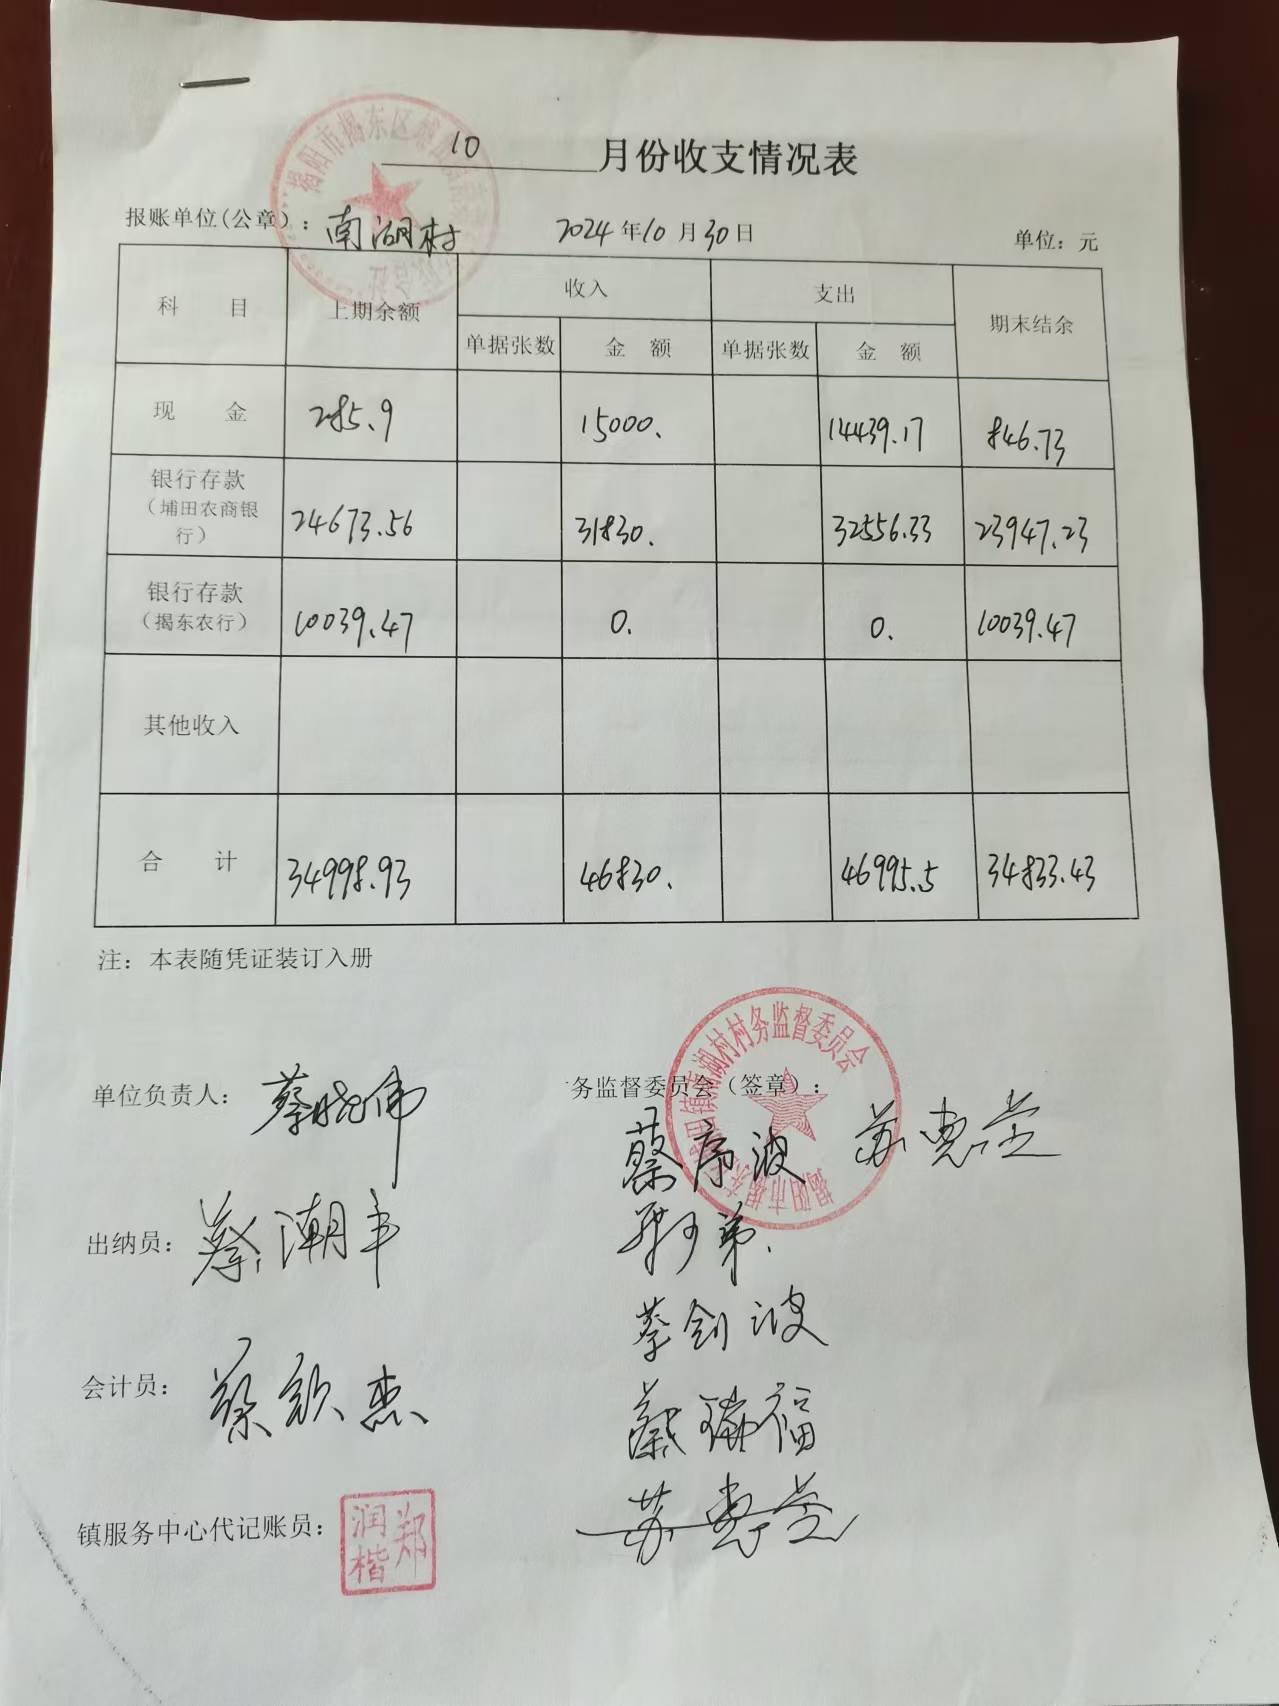 10 月份收支情况表
报账单位(公章)：南湖村 2024年10月30日 单位：元
科 目 上期余额 收入 支出 期末结余
单据张数 金 额 单据张数 金 额
现 金 285.9 15000. 14439.17 846.73
银行存款（埔田农商银行） 24673.56 31830. 32556.33 23947.23
银行存款（揭东农行） 10039.47 0. 0. 10039.47
其他收入
合 计 34998.93 46830. 46995.5 34833.43
注：本表随凭证装订入册
单位负责人：蔡晓伟
务监督委员会（签章）：
南湖村村务监督委员会
揭阳市揭东
蔡序波 苏惠莹
出纳员：蔡潮丰
弟
蔡创波
会计员：蔡欽杰
蔡瑞福
苏惠莹
镇服务中心代记账员：郑润楷
揭阳市揭东区